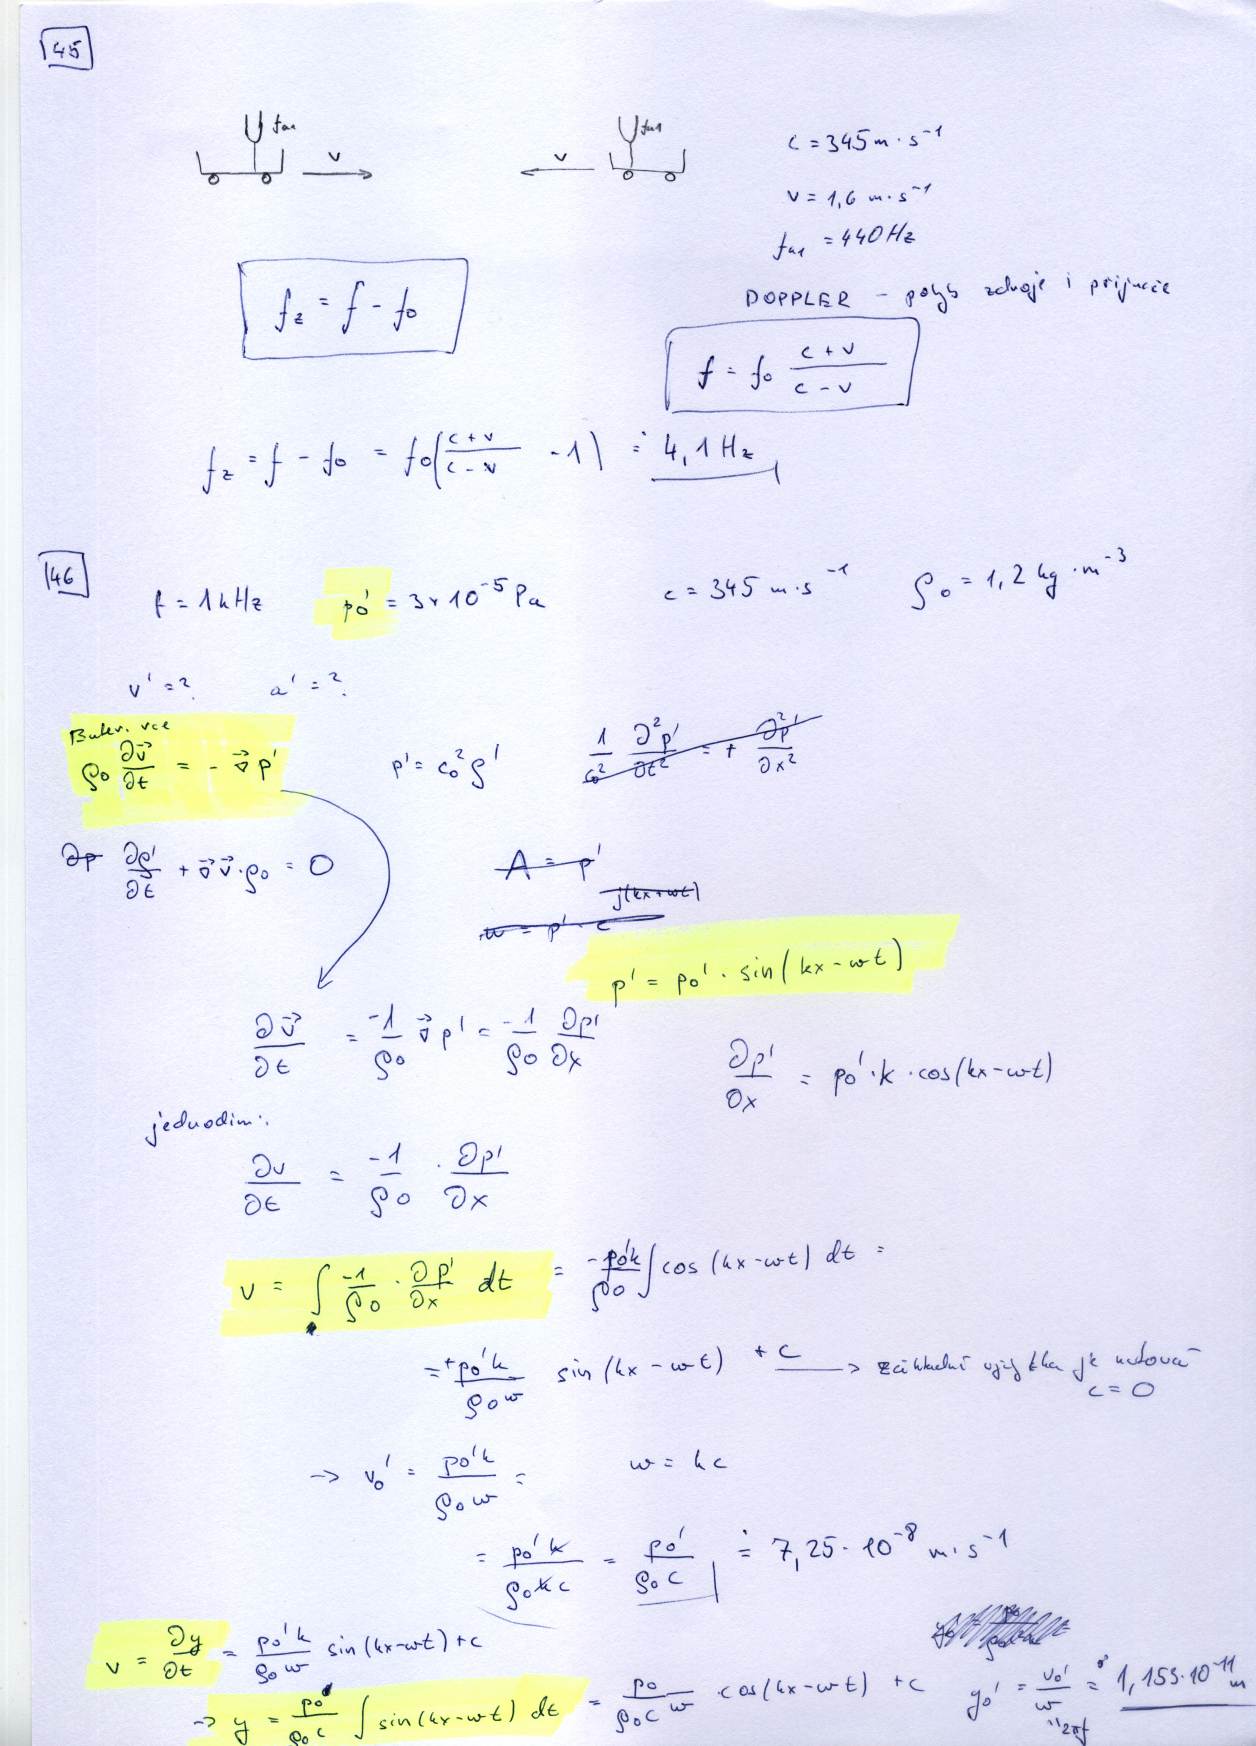 45
fa1
fa1
v
v
c = 345 m·s⁻¹
v = 1,6 m·s⁻¹
fa1 = 440 Hz
DOPPLER – pohyb zdroje i přijímače
f_z = f - f₀
f = f₀ (c + v)/(c - v)
f_z = f - f₀ = f₀((c + v)/(c - v) - 1) ≐ 4,1 Hz
46
f = 1kHz p₀' = 3×10⁻⁵ Pa c = 345 m·s⁻¹ ρ₀ = 1,2 kg·m⁻³
v' = ? a' = ?
rce
ρ₀ ∂v⃗/∂t = - ∇⃗ p' p' = c₀² ρ' 1/c₀² ∂²p'/∂t² = + ∂²p'/∂x²
∂p ∂ρ'/∂t + ∇⃗ v⃗ · ρ₀ = 0 A = p'
w = p' · e^j(kx+ωt)
p' = p₀' · sin(kx - ωt)
∂v⃗/∂t = -1/ρ₀ ∇⃗ p' = -1/ρ₀ ∂p'/∂x
∂p'/∂x = p₀' · k · cos(kx - ωt)
jednodim.:
∂v/∂t = -1/ρ₀ · ∂p'/∂x
v = ∫ -1/ρ₀ · ∂p'/∂x dt = -p₀'k/ρ₀ ∫ cos(kx - ωt) dt =
= + p₀'k/ρ₀ω sin(kx - ωt) + c → základní výchylka je nulová
c = 0
→ v₀' = p₀'k/ρ₀ω = ω = kc
= p₀'k/ρ₀kc = p₀'/ρ₀c ≐ 7,25 · 10⁻⁸ m·s⁻¹
v = ∂y/∂t = p₀'k/ρ₀ω sin(kx-ωt) + c
→ y = p₀'/ρ₀c ∫ sin(kx-ωt) dt = p₀/ρ₀cω · cos(kx - ωt) + c y₀' = v₀'/ω ≐ 1,153·10⁻¹¹ m
"2πf